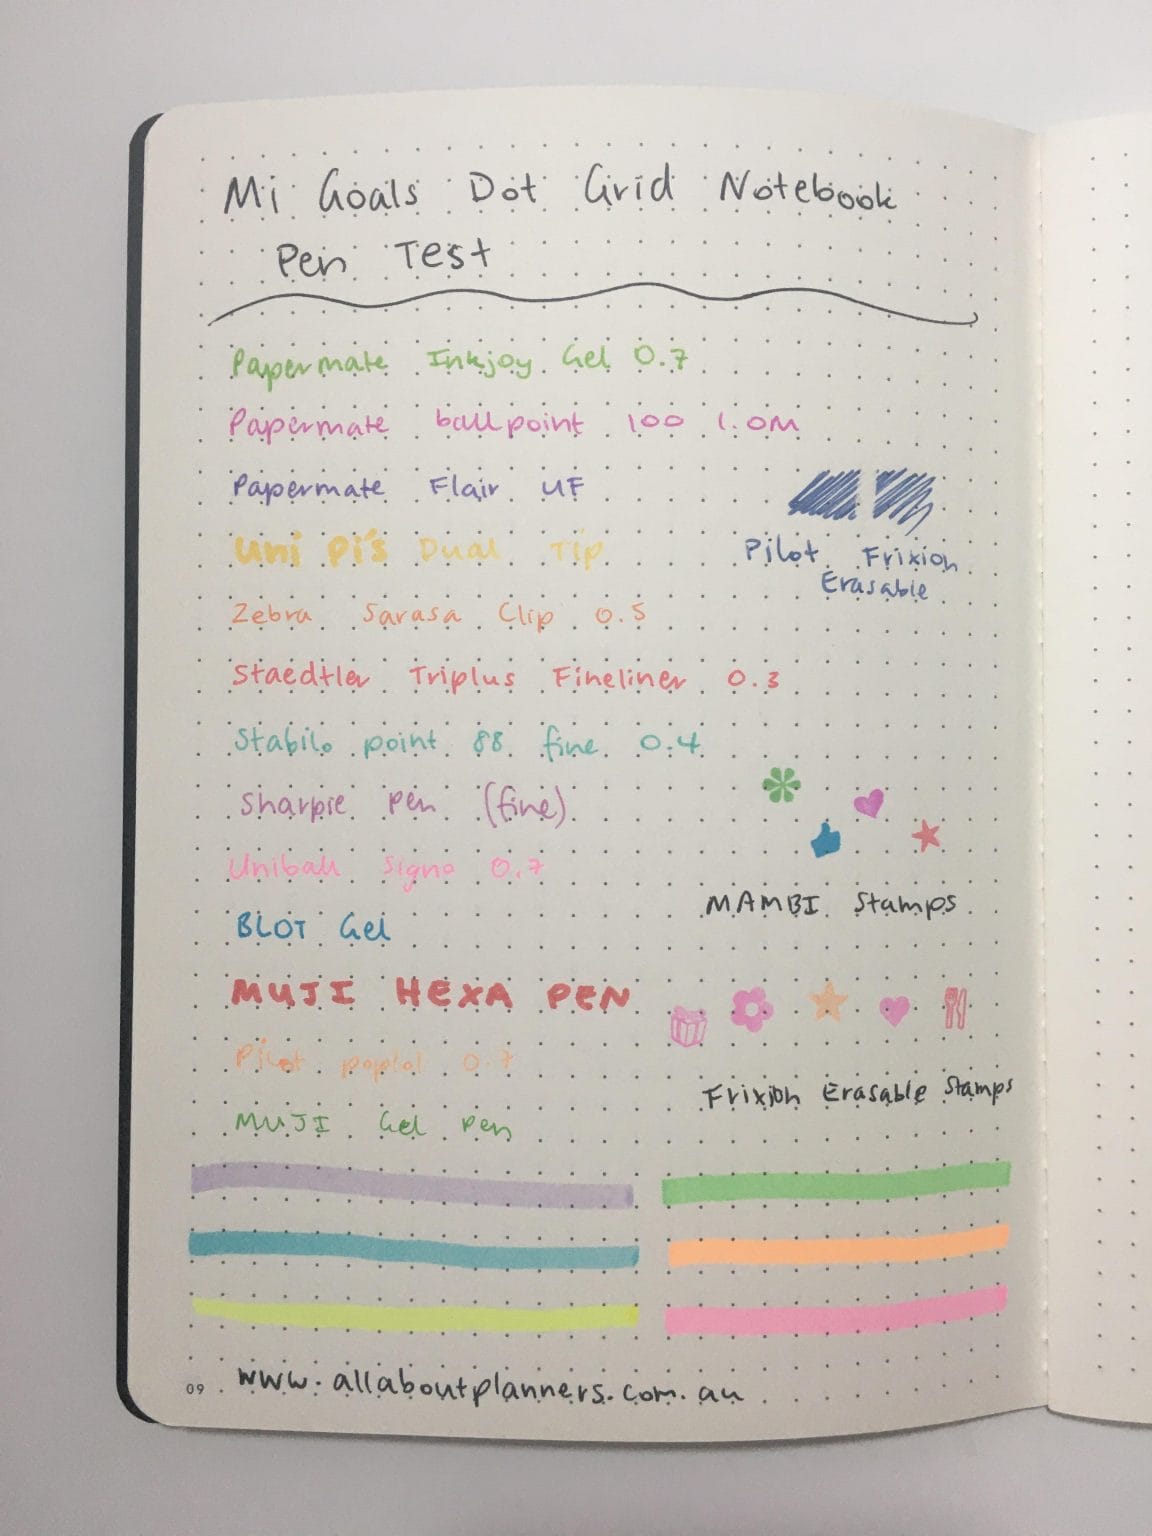 Mi Goals Dot Grid Notebook
Pen Test
Papermate Inkjoy Gel 0.7
Papermate ballpoint 100 1.0M
Papermate Flair UF
Uni Pi's Dual Tip
Pilot Frixion
Erasable
Zebra Sarasa Clip 0.5
Staedtler Triplus Fineliner 0.3
Stabilo point 88 fine 0.4
Sharpie Pen (fine)
Uniball Signo 0.7
MAMBI Stamps
BLOT Gel
MUJI HEXA PEN
Pilot poplol 0.7
Frixion Erasable Stamps
MUJI Gel Pen
09
www.allaboutplanners.com.au